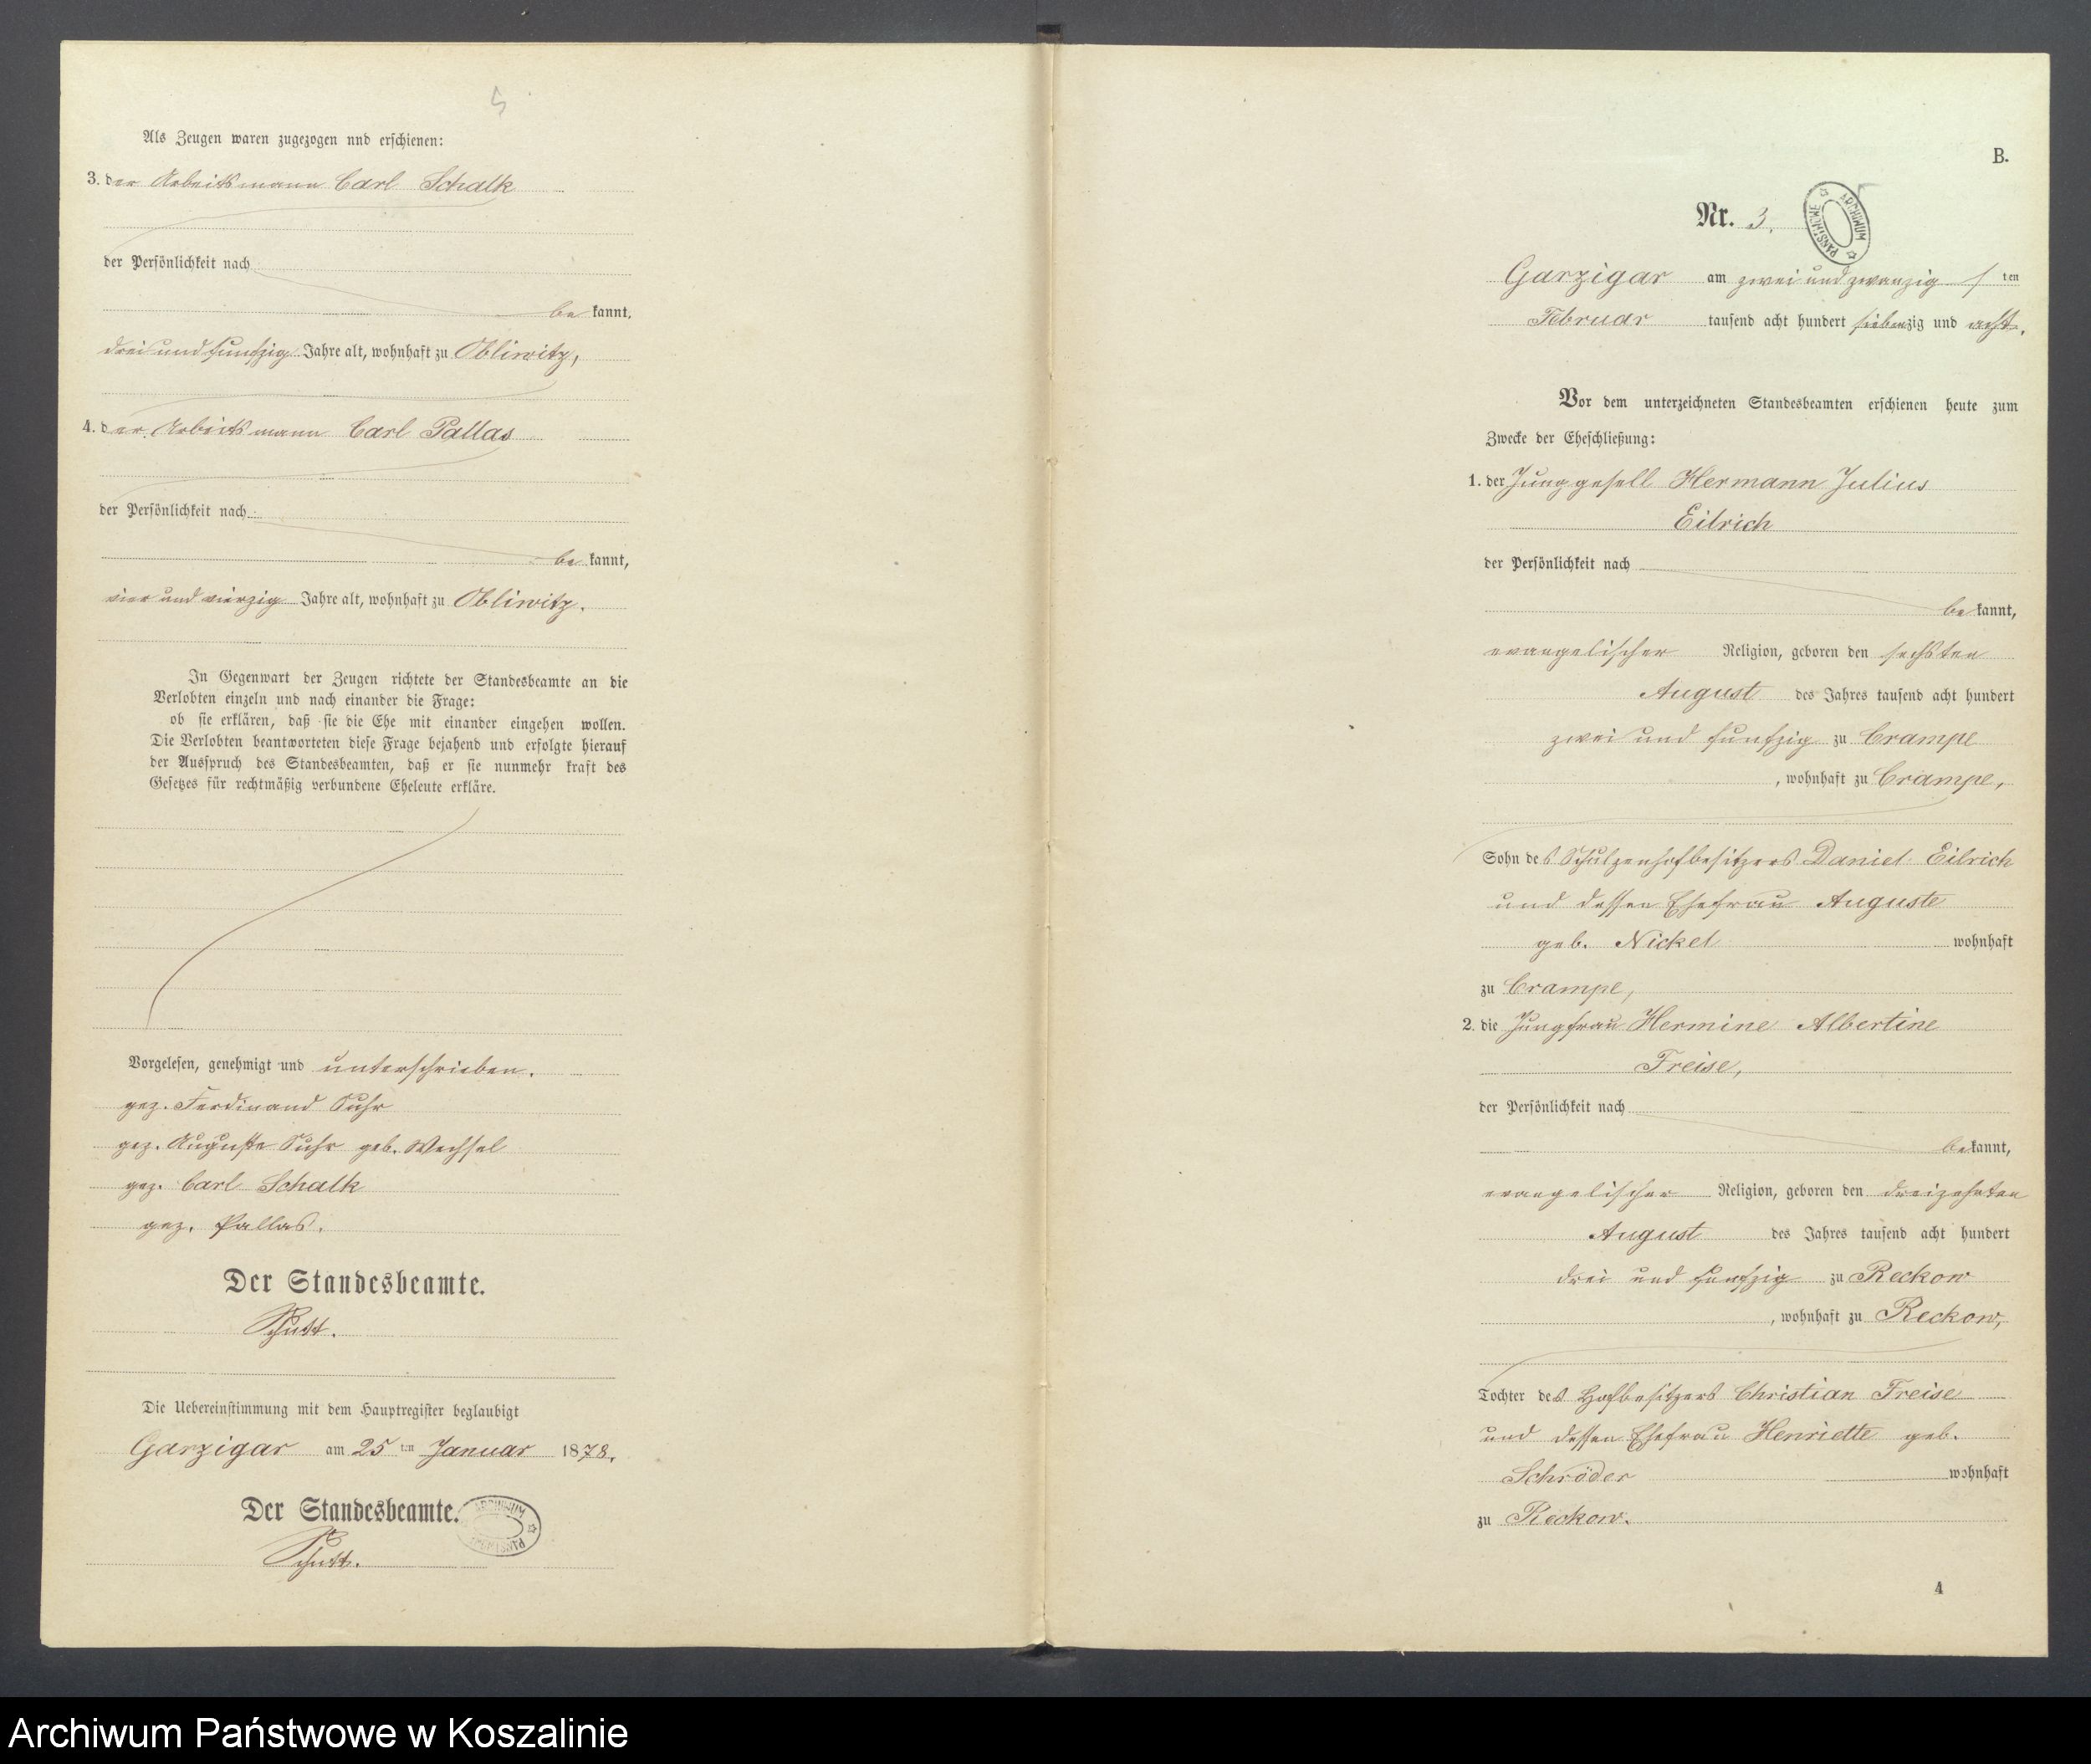 5
Als Zeugen waren zugezogen nnd erschienen:
3. der Arbeitsmann Carl Schalk
der Persönlichkeit nach
be kannt,
drei und funfzig Jahre alt, wohnhaft zu Obliwitz,
4. der Arbeitsmann Carl Pallas
der Persönlichkeit nach
be kannt,
vier und vierzig Jahre alt, wohnhaft zu Obliwitz.
In Gegenwart der Zeugen richtete der Standesbeamte an die
Verlobten einzeln und nach einander die Frage:
ob sie erklären, daß sie die Ehe mit einander eingehen wollen.
Die Verlobten beantworteten diese Frage bejahend und erfolgte hierauf
der Ausspruch des Standesbeamten, daß er sie nunmehr kraft des
Gesetzes für rechtmäßig verbundene Eheleute erkläre.
Vorgelesen, genehmigt und unterschrieben.
gez. Ferdinand Suhr
gez. Auguste Suhr geb. Wechsel
gez. Carl Schalk
gez. Pallas.
Der Standesbeamte.
Schütt.
Die Uebereinstimmung mit dem Hauptregister beglaubigt
Garzigar am 25 ten Januar 1878.
Der Standesbeamte.
ARCHIWUM PAŃSTWOWE
Schütt.
B.
Nr. 3.
ARCHIWUM PAŃSTWOWE
Garzigar am zwei und zwanzig ten
Februar tausend acht hundert siebenzig und acht.
Vor dem unterzeichneten Standesbeamten erschienen heute zum
Zwecke der Eheschließung:
1. der Junggesell Hermann Julius
Eilrich
der Persönlichkeit nach
be kannt,
evangelischer Religion, geboren den sechsten
August des Jahres tausend acht hundert
zwei und funfzig zu Crampe
, wohnhaft zu Crampe,
Sohn des Schulzenhofbesitzers Daniel Eilrich
und dessen Ehefrau Auguste
geb. Nickel wohnhaft
zu Crampe,
2. die Jungfrau Hermine Albertine
Freise,
der Persönlichkeit nach
be kannt,
evangelischer Religion, geboren den dreizehnten
August des Jahres tausend acht hundert
drei und funfzig zu Reckow
, wohnhaft zu Reckow,
Tochter des Hofbesitzers Christian Freise
und dessen Ehefrau Henriette geb.
Schröder wohnhaft
zu Reckow.
4
Archiwum Państwowe w Koszalinie